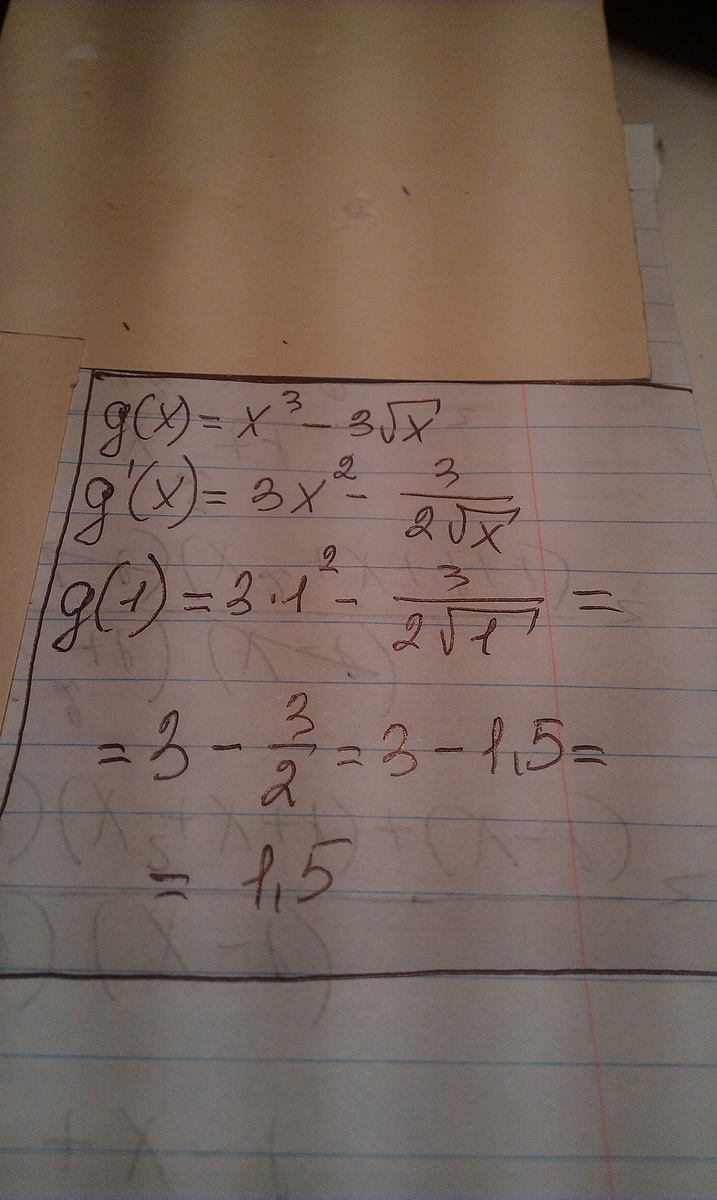 g(x) = x³ - 3√x
g'(x) = 3x² - 3/(2√x)
g(1) = 3·1² - 3/(2√1) =
= 3 - 3/2 = 3 - 1,5 =
= 1,5